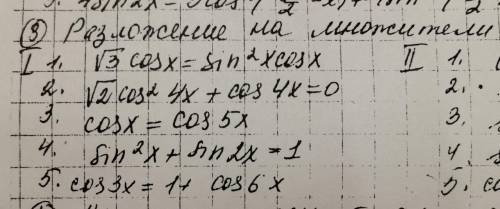 ③ Разложение на множители
I 1. √3 cosx = sin²xcosx II 1.
2. √2 cos² 4x + cos 4x = 0 2.
3. cosx = cos 5x 3.
4. sin²x + sin2x = 1 4.
5. cos3x = 1 + cos6x 5. co